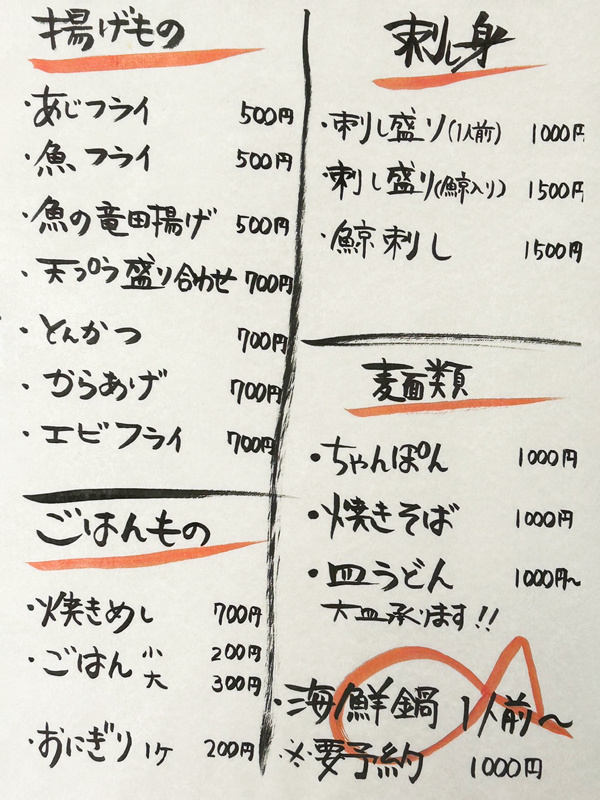 揚げもの
・あじフライ 500円
・魚フライ 500円
・魚の竜田揚げ 500円
・天ぷら盛り合わせ 700円
・とんかつ 700円
・からあげ 700円
・エビフライ 700円
ごはんもの
・焼きめし 700円
・ごはん 小 200円
大 300円
・おにぎり 1ケ 200円
刺し身
・刺し盛り(1人前) 1000円
・刺し盛り(鯨入り) 1500円
・鯨刺し 1500円
麺類
・ちゃんぽん 1000円
・焼きそば 1000円
・皿うどん 1000円~
大皿承ります!!
・海鮮鍋 1人前~
※要予約 1000円